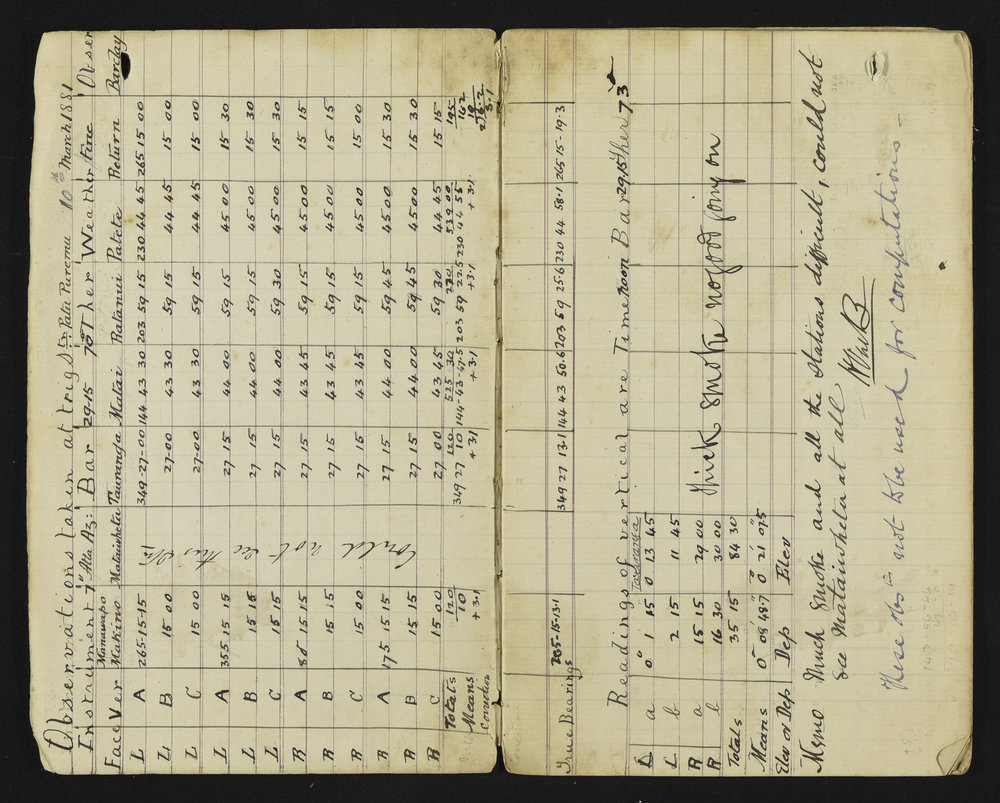 Observations taken at trig Stn Pata Puremu 10th March 1881
Instrument 7" Alta Az: Bar 29-15 Ther 70° Weather Fine Obser
Face Ver Manawapo Makino Mataiwhetu Tauranga Matai Ratanui Patete Return Barclay
L A 265-15-15 349-27-00 144 43 30 203 59 15 230 44 45 265 15 00
L B 15 00 27-00 43 30 59 15 44 45 15 00
L C 15 00 27-00 43 30 59 15 44 45 15 00
L A 355 15 15 27 15 44 00 59 15 45 00 15 30
L B 15 15 27 15 44 00 59 15 45 00 15 30
L C 15 15 27 15 44 00 59 30 45 00 15 30
R A 85 15 15 27 15 43 45 59 15 45 00 15 15
R B 15 15 27 15 43 45 59 15 45 00 15 15
R C 15 00 27 15 43 45 59 15 45 00 15 00
R A 175 15 15 27 15 44 00 59 45 45 00 15 30
R B 15 15 27 15 44 00 59 45 45 00 15 30
R C 15 00 27 00 43 45 59 30 44 45 15 15
Could not see this Stn
Totals 120 120 525 30 230 539 00 195
Means 10 349 27 10 144-43-47.5 203 59 22.5 230 44 55 16.2
Correction +3.1 +3.1 +3.1 +3.1 +3.1
True Bearings 265-15-13.1 349 27 13.1 144 43 50.6 203 59 25.6 230 44 58.1 265 15-19.3
Readings of vertical are Time noon Bar 29.15 Ther 73
Tauranga
L a 0° 1 15 0 13 45
L b 2 15 11 45
R a 15 15 29 00
R b 16 30 30 00
Totals 35 15 84 30
Means 0° 08' 48.7" 0° 21' 07.5"
Elev or Dep Dep Elev
Thick smoke no good going on
Memo Much smoke and all the stations difficult, could not
see Mataiwhetu at all
These obsns not to be used for computations –